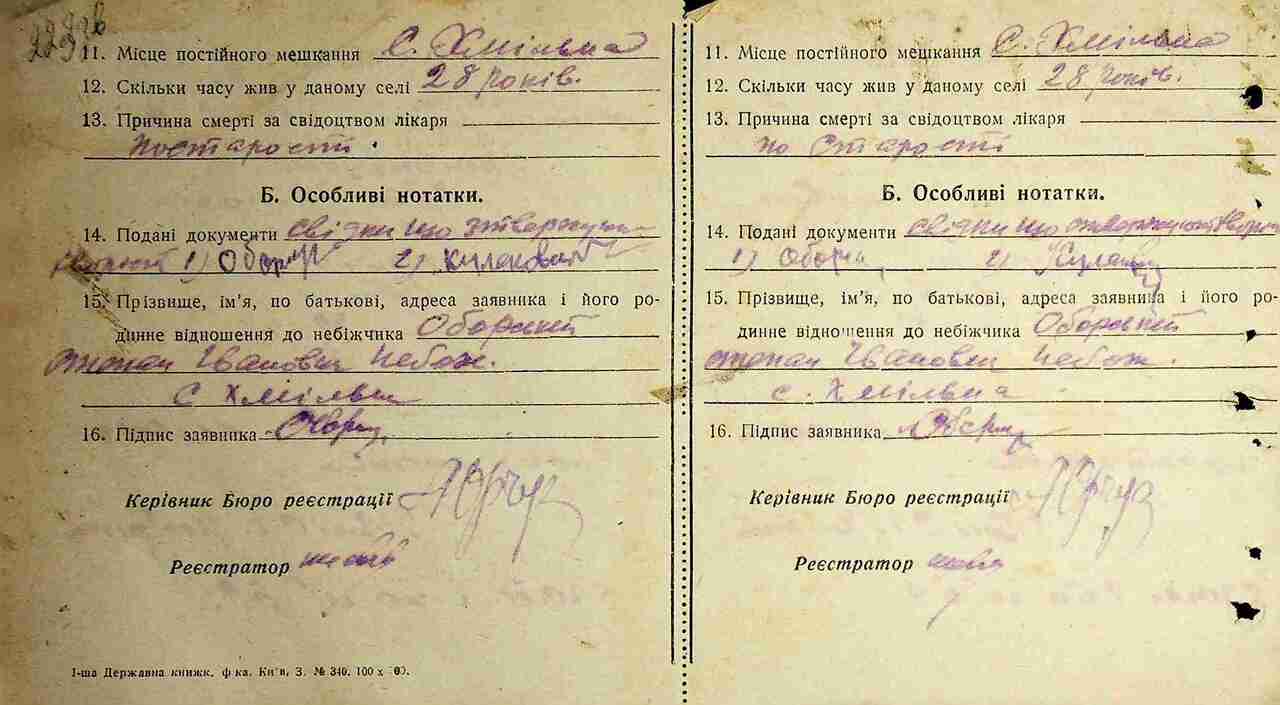 11. Місце постійного мешкання С. Хмільна
12. Скільки часу жив у даному селі 28 років.
13. Причина смерті за свідоцтвом лікаря
по старости.
Б. Особливі нотатки.
14. Подані документи свідки що
1) 2)
15. Прізвище, ім'я, по батькові, адреса заявника і його ро-
динне відношення до небіжчика Оборський
Степан Іванович Небож.
С Хмільна
16. Підпис заявника
Керівник Бюро реєстрації
Реєстратор
1-ша Державна книжк. ф-ка. Київ, З. № 340. 100 х
11. Місце постійного мешкання С. Хмільна
12. Скільки часу жив у даному селі 28 років.
13. Причина смерті за свідоцтвом лікаря
по Старості
Б. Особливі нотатки.
14. Подані документи свідки що
1) 2)
15. Прізвище, ім'я, по батькові, адреса заявника і його ро-
динне відношення до небіжчика Оборський
Степан Іванович Небож.
с. Хмільна
16. Підпис заявника
Керівник Бюро реєстрації
Реєстратор